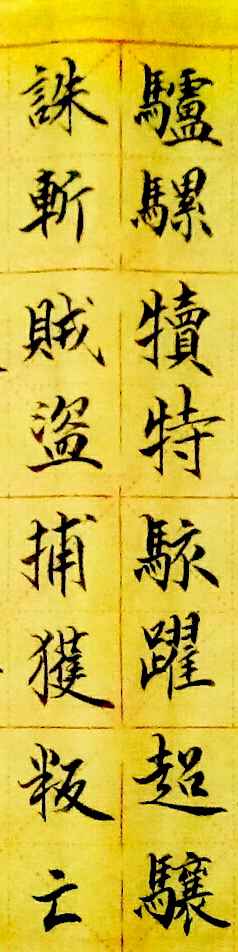 驢騾犢特駭躍超驤
誅斬賊盜捕獲叛亡